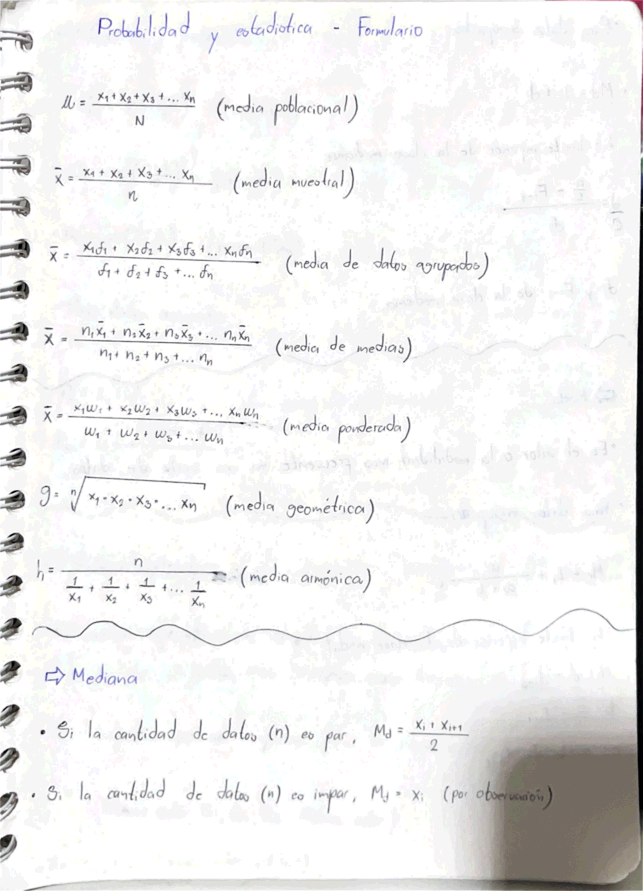 Probabilidad y estadística - Formulario
μ = x₁+x₂+x₃+... xₙ / N (media poblacional)
x̄ = x₁+x₂+x₃+... xₙ / n (media muestral)
x̄ = x₁f₁ + x₂f₂ + x₃f₃ +... xₙfₙ / f₁ + f₂ + f₃ +... fₙ (media de datos agrupados)
x̄ = n₁x̄₁ + n₂x̄₂ + n₃x̄₃ +... nₙx̄ₙ / n₁+ n₂ + n₃ +... nₙ (media de medias)
x̄ = x₁w₁ + x₂w₂ + x₃w₃ +... xₙwₙ / w₁ + w₂ + w₃ +... wₙ (media ponderada)
g = ⁿ√x₁·x₂·x₃·... xₙ (media geométrica)
h = n / 1/x₁ + 1/x₂ + 1/x₃ +... 1/xₙ (media armónica)
⇨ Mediana
• Si la cantidad de datos (n) es par, Md = xᵢ + xᵢ₊₁ / 2
• Si la cantidad de datos (n) es impar, Md = xᵢ (por observación)